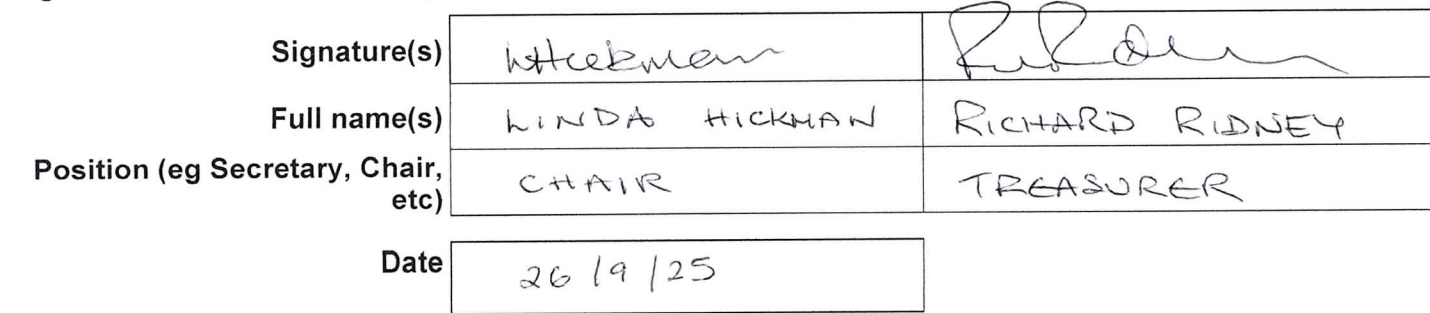 Signature(s) LHickman
Full name(s) LINDA HICKMAN RICHARD RIDNEY
Position (eg Secretary, Chair, etc) CHAIR TREASURER
Date 26/9/25